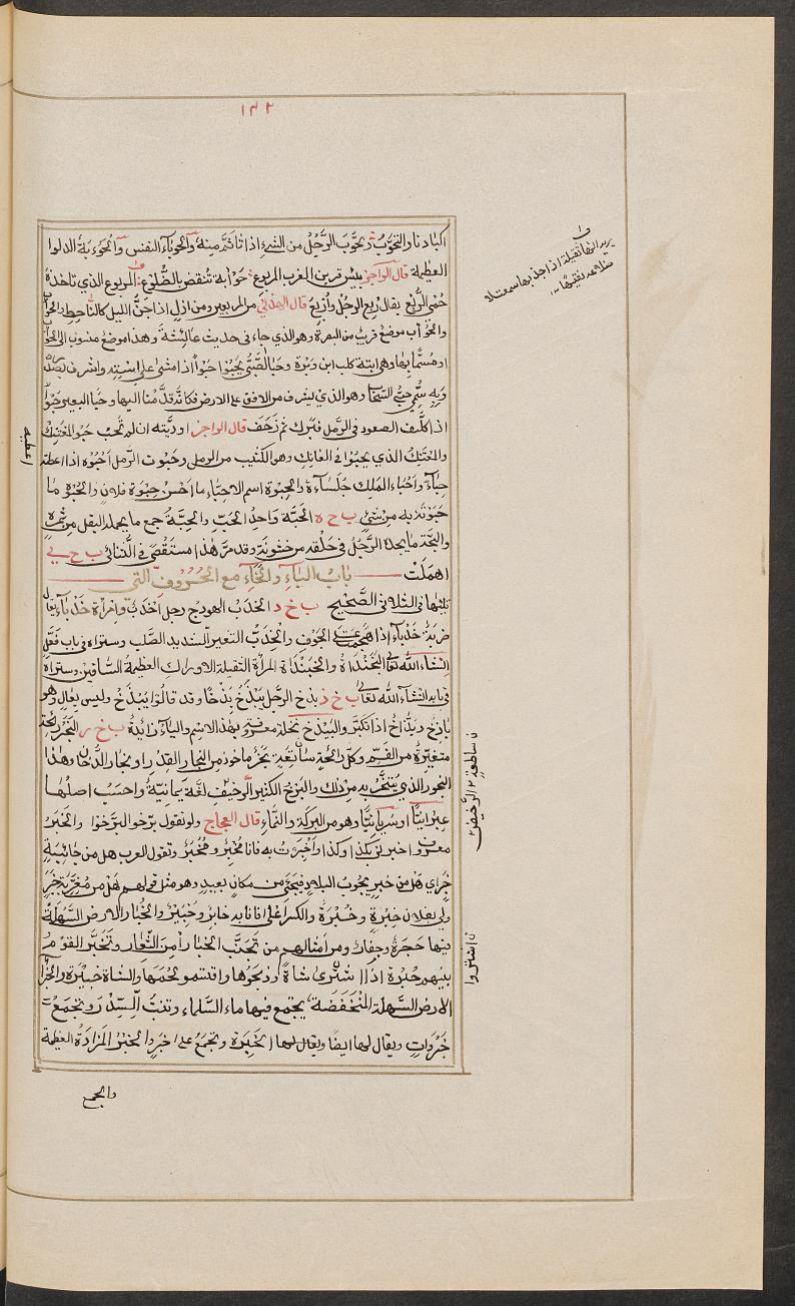 ١٣٢
اكبادنا والتحوّب وتحوّب الرَّجُل من الشيء اذا تأثّم منه والحوباء النفس والحَوءبة الدلو
العظيمة قال الراجز بئس قرين العزب المربوع حوأبة تنقض بالضُّلوع المربوع الذي تاخذه
حُمى الرِّبْع يقال رُبِع الرجُل وأُرْبِعَ قال الهذلي من المربعين ومن ازلٍ اذا جنَّ الليل كالناحط والحوأب
والحوأب موضع قريب من البصرة وهو الذي جاء في حديث عائشة وهذا موضع منسوب الى الحوأب
وهي ابنة كلب ابن وبرة وحبا الصَّبيُّ يحبُوا حبْوًا اذا مشى على اسْتِه واشرف بصدره
وبه سُمّي حبيُّ السّحاب وهو الذي يشرف من الافق على الارض فكانّه قد دنا اليها وحبا البعير حبوًا
اذا كُلّف الصعود في الرّمل فبرك ثم زحف قال الراجز اوديتَ ان لم تحب حبو المعتنك
والمعتنك الذي يحبوا في العانك وهو الكثيب من الرمل وحبوت الرّجل احبُوه اذا اعطيته
حِبَاءً وأحْبَاء المَلِك جُلَسَاءهُ والحِبْوة اسم الاحتباء ما احْسَنَ حِبْوة فلانٍ والحُبْوة ما
حَبَوْته به من شيء ب ح ه الحَبَّة واحدُ الحَبّ والحِبَّة جمع ما يحمله البقل من ثمره
والبحّة ما يجده الرَّجُل في حَلقه من خشونة وقد مرَّ هٰذا مستقصى في الثنائي ب ح ي
اهملت باب الباء والخاء مع الحروف التي
تليها في الثلاثي الصَّحيح ب خ د الخدب الهودج رجل أخدَبُ وامرأة خَدْباءُ يقال
ضربة خدباء اذا هجمت على الجوف والخِدَبُّ البعير الشديد الصّلب وستراه في باب فِعَلّ
انشاء الله تعالى البَخَنْدَاةُ والخَبَنْدَاة المرأة الثقيلة الاوراك العظيمة السّاقين وستراه
في بابه انشاء الله تعالى ب خ ذ بذخ الرجل يَبْذَخ بَذْخًا وقد قالوا يَبْذُخُ وليس بعالٍ وهو
باذخ وبَذّاخ اذا تكبَّر والبيذخ نخلة معروفة بهذا الاسم والياء زائدة ب خ ر البَخَر رائحة
متغيّرة من الفم وكل رائحةٍ ساطعةٍ بَخَر ماخوذ من بخار القِدْر او بخار الدُّخان وهٰذا
البخور الذي يُتبخَّر به من ذلك والبَرْخ الكثير الرخيص لغة يمانيّة واحسب اصلها
عبرانيًّا او سُريانيًّا وهو من البركة والنّماء قال العجاج ولو نقول برّخوا لبرّخوا والخَبَر
معروف اخبرته بكذا وكذا واُخْبِرتُ به فانا مُخْبِر ومُخْبَر وتقول العرب هل من جائبة
خَبَر اي هل من خبر يجوب البلاد فيجيء من مكان بعيد وهو مثل قولهم هل من مُغَرِّبة خَبَر
ولي بفلان خِبْرة وخُبْرة والكسر اعلى فانا به خابرٌ وخبيرٌ والخَبَار الارض السَّهْلة
فيها حَجَرَة وجِفَار ومن امثالهم من تجنّب الخَبَار أمِنَ العثار وتخبّر القوم
بينهم خُبْرة اذا اشترى شاةً وذبحوها واقتسموا لحمها والشاة خبيرة والخَبْراء
الارض السَّهلة المنخفضة يجتمع فيها ماء السّماء وتنبت السِّدْر وتجمَعُ
خَبْراوات ويقال لها ايضًا ويقال لها الخَبِرة وتجمع على خَبِر والخَبْر المزادة العظيمة
والجمع
يريد انها ثقيلة اذا جذبها سمعت لا
ضلاعه نقيضها
اعطيه
ن ساطعة
الرخيص
ن اشتروا